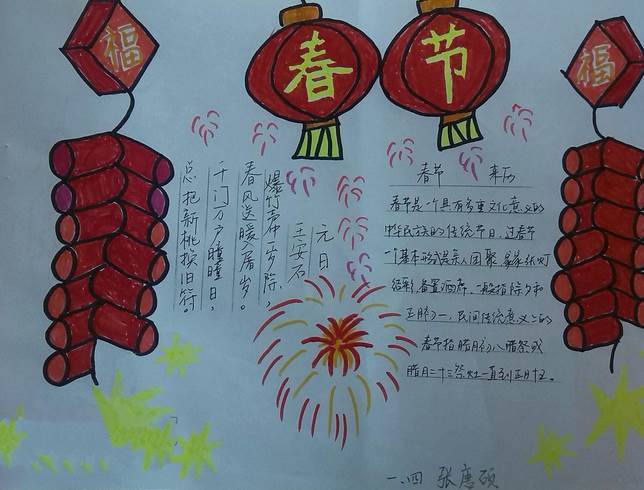 福
春
节
福
元日
王安石
爆竹声中一岁除,
春风送暖入屠
千门万户瞳瞳日,
总把新桃换旧符。
春节 来历
春节是一个具有多重文化意义的
中华民族的传统节日,过春节
一个基本形式是亲人团聚,家家张灯
结彩,备置酒席,一般指除夕和
正月初一,民间传统意义上的
春节指腊月初八腊祭或
腊月二十三祭灶一直到正月十五。
一.四 张惠硕